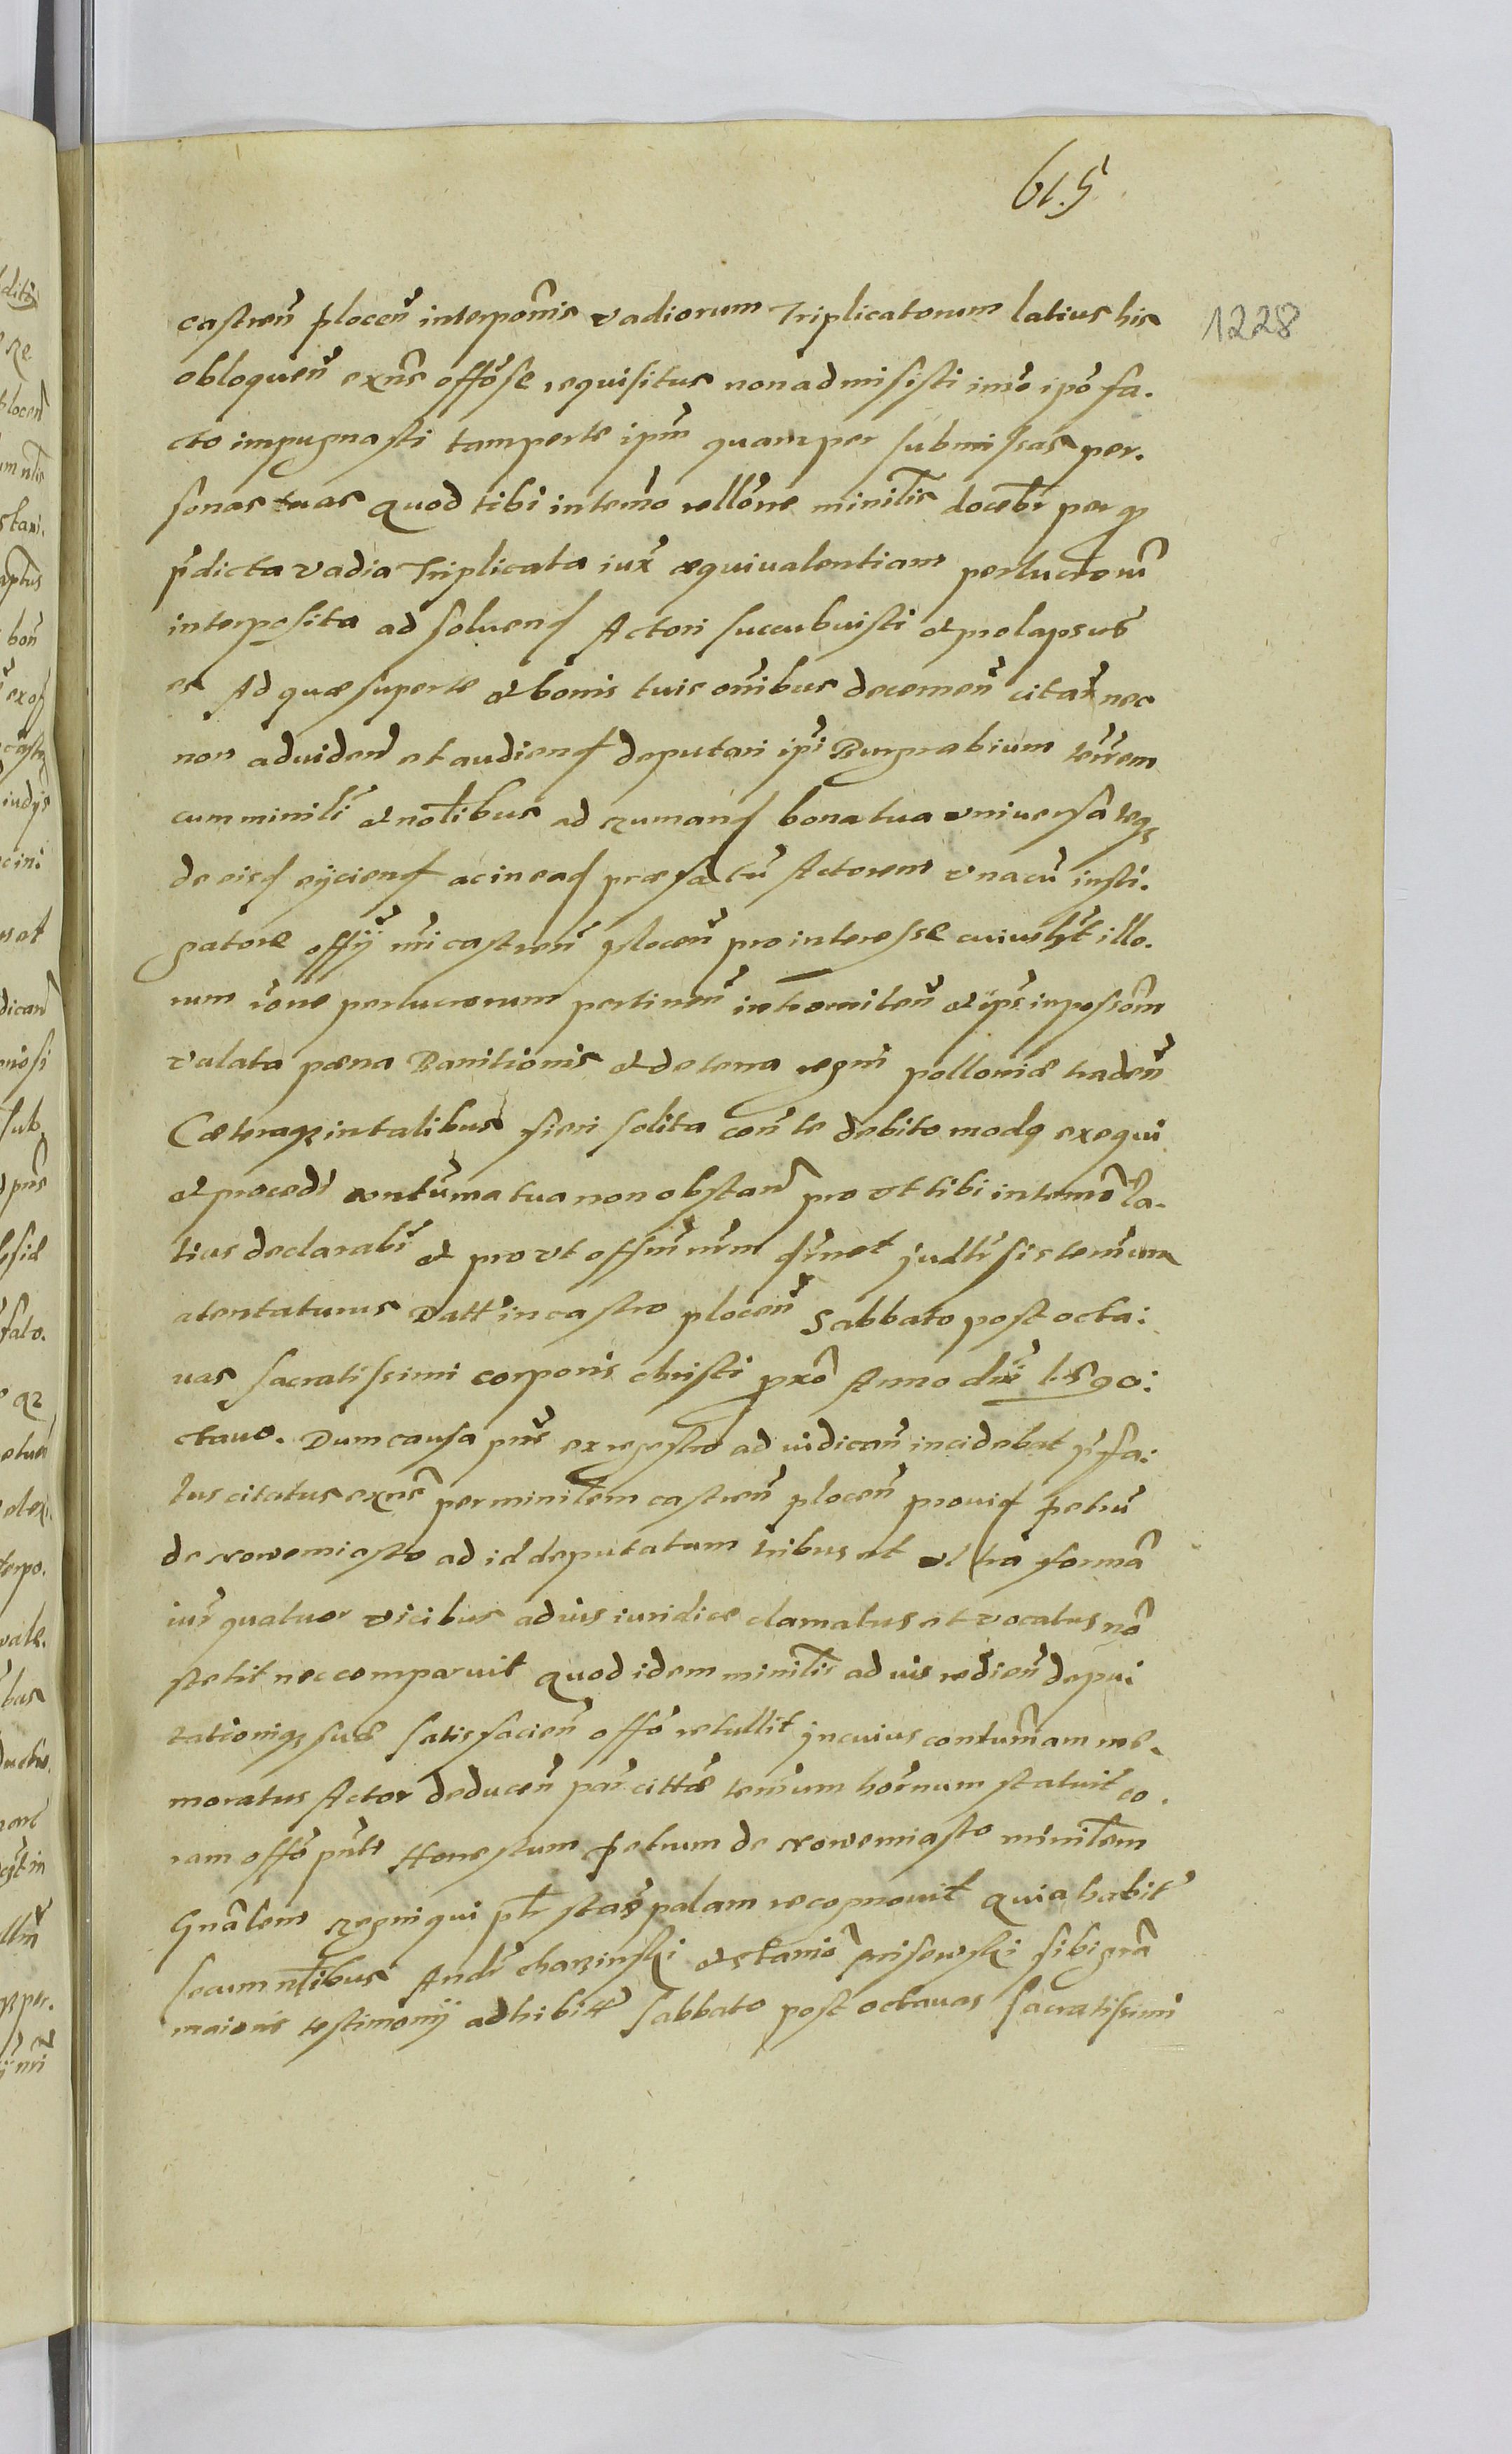 615
1228
castren̄ plocen̄ interpoñis vadiorum Triplicatorum latius his
obloquen̄ exñs offõse requisitus non admisisti imõ ipõ fa.
cto impugnasti tam per te ipm̃ quam per submissas per.
sonas tuas Quod tibi in termõ rellõne minilis docebr̃ per q̃
p̃dicta vadia Triplicata iux̃ æquivalentiam perlucrorũ
interposita ad soluend Actori succubuisti et prolapsus
es Ad quæ super te et bonis tuis oñibus decernen̄ citar̃ nec
non ad vidend et audiend deputari ipĩ Burgrabium terr̃em
cum minilĩ et nobilibus ad rumand bona tua vniversa teq3
de eisd eijciend ac in ead præfatũ Actorem vna cũ insti.
gatore offij nr̃i castren̄ plocen̄ pro interesse cuiuslibet illo.
rum rõne perlucrorum pertinen̄ intromitten̄ et ips̃ in possõm
valata pæna Banitionis et de terra regni polloniæ traden̄
Cæteraq3 in talibus fieri solita con̄ te debito modo exequi
et procedi contũma tua non obstan̄ pro vt tibi in termõ la.
tius declarabĩ et pro vt offim̃ nrm̃ judlr̃ sis termũm
atentaturus Datt̃ in castro plocen̄ Sabbato post octa:
uas sacratissimi corporis christi proxõ Anno dni 1590:
ctauo. Dum causa pñs ex regestro ad iudicañ incidebat p̃fa:
tus citatus exñs per minilem castren̄ plocen̄ provid petrũ
de nowemiasto ad id deputatum tribus et vltra formã
iur̃ quatuor vicibus ad ius iuridice clamatus et vocatus nõ
stetit nec comparuit Quod idem minilis ad ius redien̄ depu
tationiq3 suæ satisfacien̄ offõ retullit jn cuius contum̃am me.
moratus Actor deducen̄ par̃ cittæ term̃um hor̃num statuit co.
ram offõ pñti Honestum petrum de nowemiasto minilem
Gnãlem regni qui pt̃ stañs palam recognovit Quia habit̃
secum nlibus Andr̃ charzinski et stanio prisewski sibi grã
maioris testimonij adhibit̃ sabbato post octauas sacratissimi